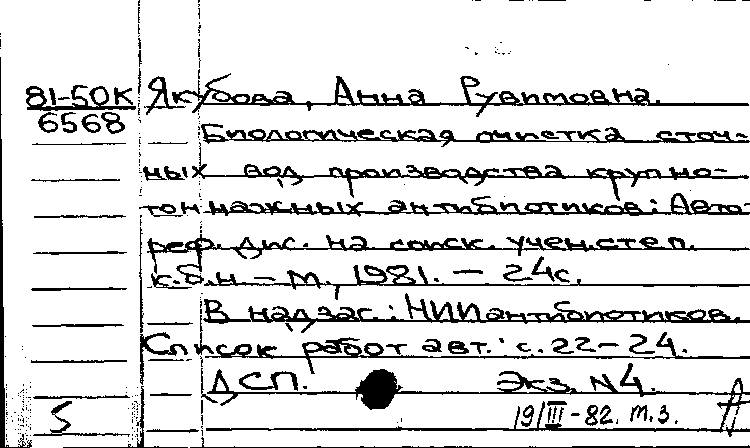 81-50К Якубова, Анна Рувимовна.
6568
Биологическая очистка сточ-
ных вод производства крупно-
тоннажных антибиотиков: Авто-
реф. дис. на соиск. учен. степ.
к.б.н. - М., 1981. - 24с.
В надзаг.: НИИ антибиотиков.
Список работ авт.: с. 22-24.
ДСП. Экз. N4.
S 19/III-82. т.з.